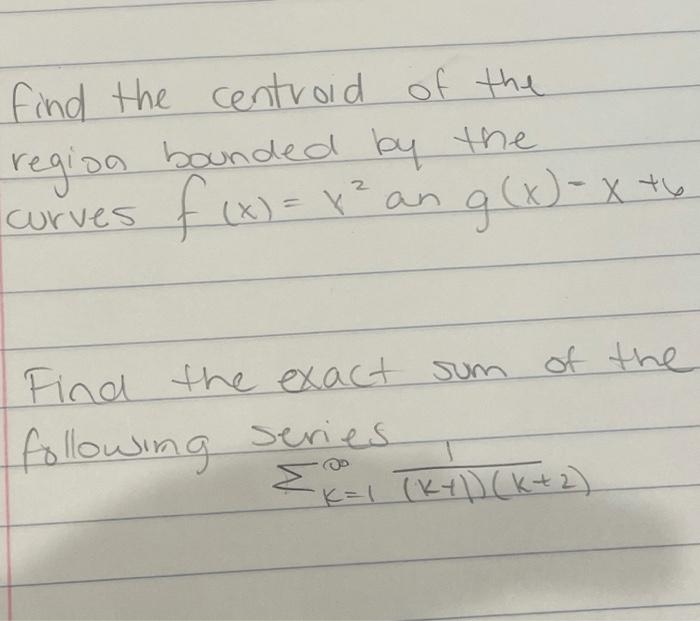 find the centroid of the
region bounded by the
curves f(x) = x² an g(x) - x +6
Find the exact sum of the
following series
∑^∞_{k=1} 1/((k+1))(k+2)